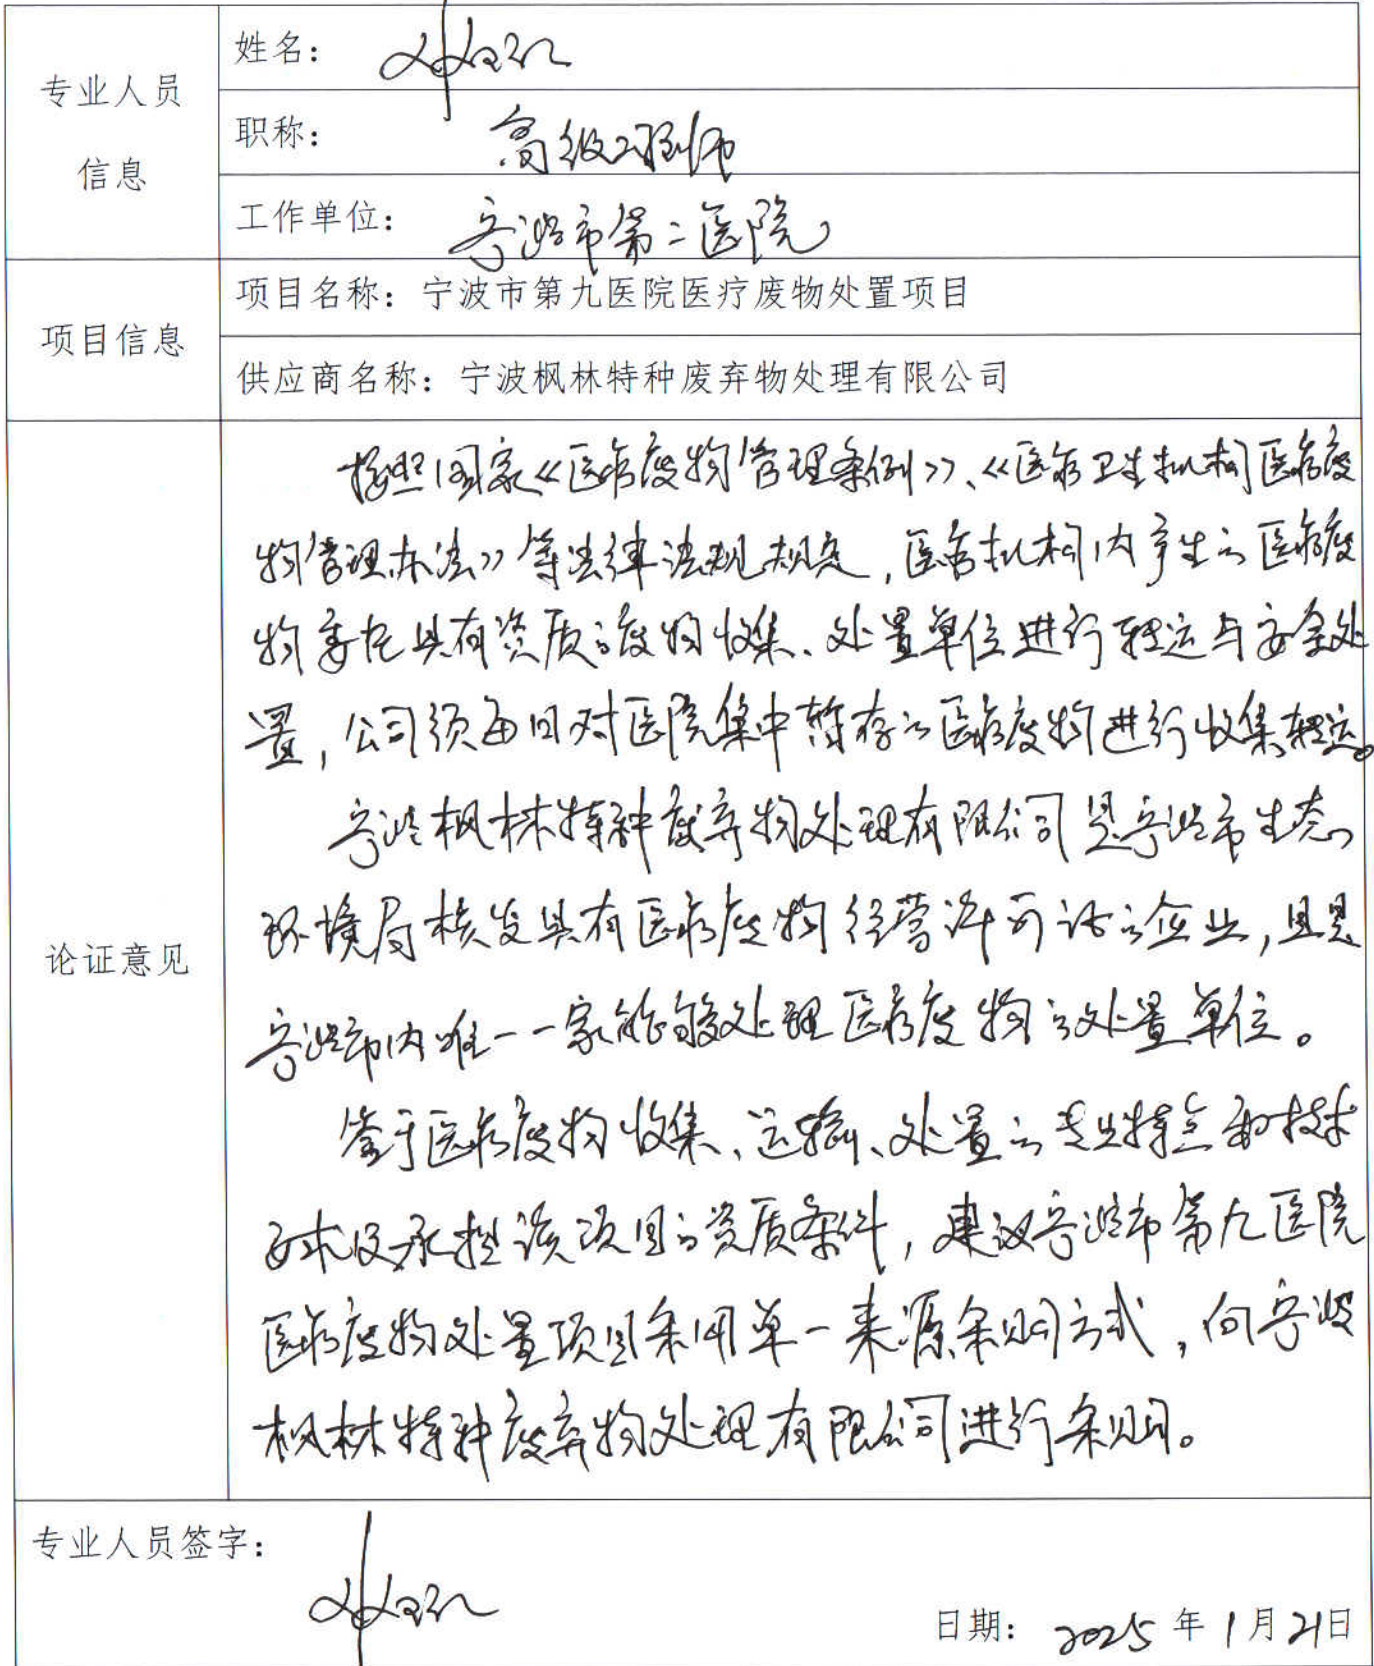 专业人员
信息
姓名：
职称：高级工程师
工作单位：宁波市第二医院
项目信息
项目名称：宁波市第九医院医疗废物处置项目
供应商名称：宁波枫林特种废弃物处理有限公司
论证意见
按照国家《医疗废物管理条例》、《医疗卫生机构医疗废
物管理办法》等法律法规规定，医疗机构内产生的医疗废
物委托具有资质的废物收集、处置单位进行转运与安全处
置，公司须每日对医院集中暂存的医疗废物进行收集转运。
宁波枫林特种废弃物处理有限公司是宁波市生态
环境局核发具有医疗废物经营许可证的企业，且是
宁波市内唯一一家能够处理医疗废物的处置单位。
鉴于医疗废物收集、运输、处置的专业特点和技术
要求及承担该项目的资质条件，建议宁波市第九医院
医疗废物处置项目采用单一来源采购方式，向宁波
枫林特种废弃物处理有限公司进行采购。
专业人员签字：
日期：2025年1月21日